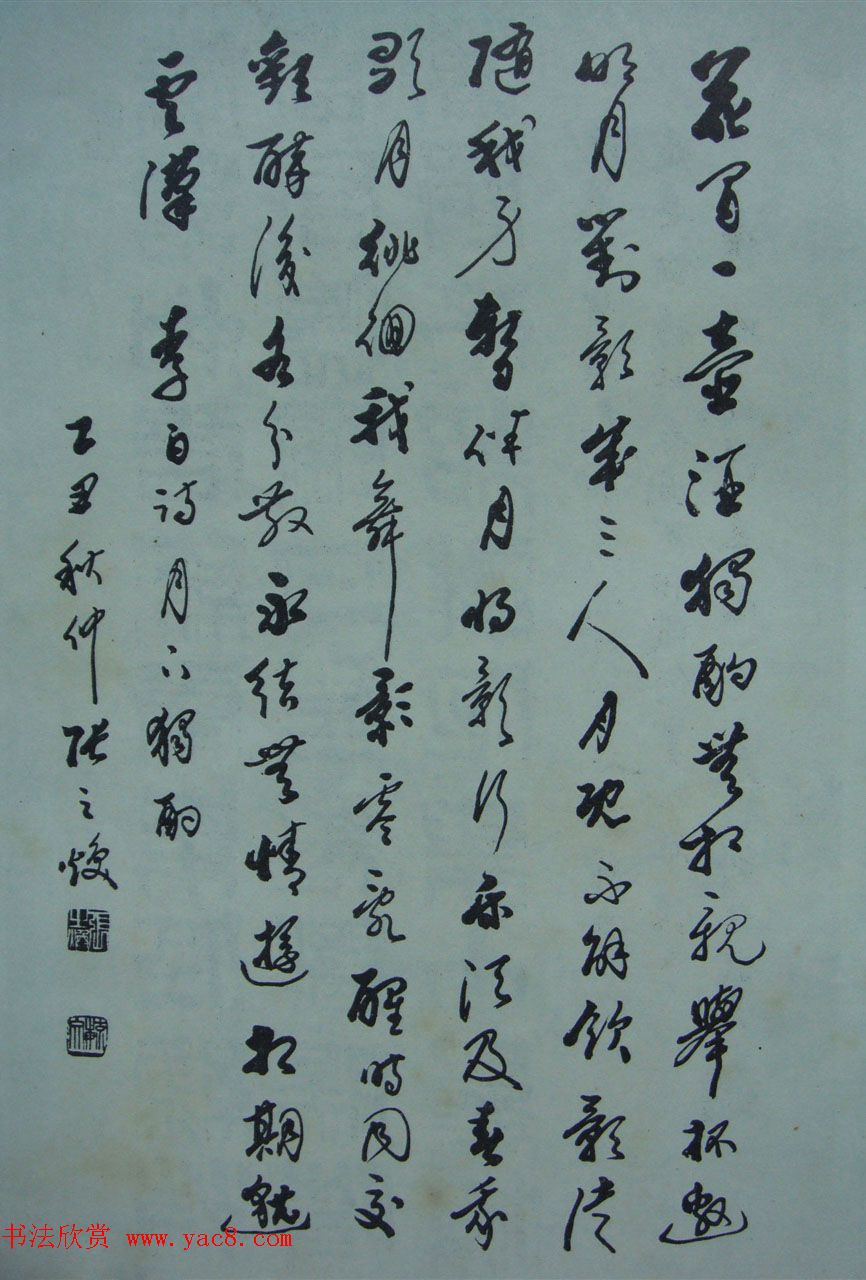 花間一壺酒獨酌無相親舉杯邀
明月對影成三人月既不解飲影徒
隨我身暫伴月將影行樂須及春我
歌月徘徊我舞影零亂醒時同交
歡醉後各分散永結無情遊相期邈
雲漢 李白詩月下獨酌
乙丑秋仲張之
书法欣赏 www.yac8.com